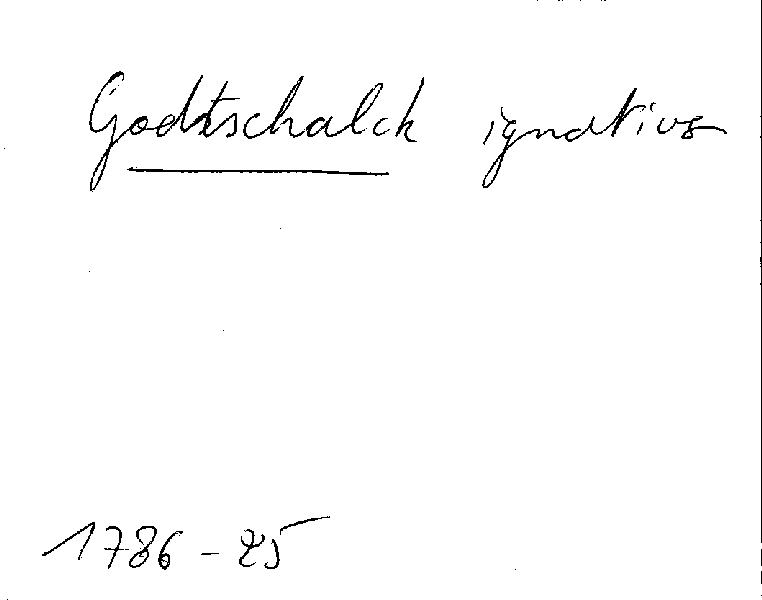 Godtschalck ignatius
1786 - 25